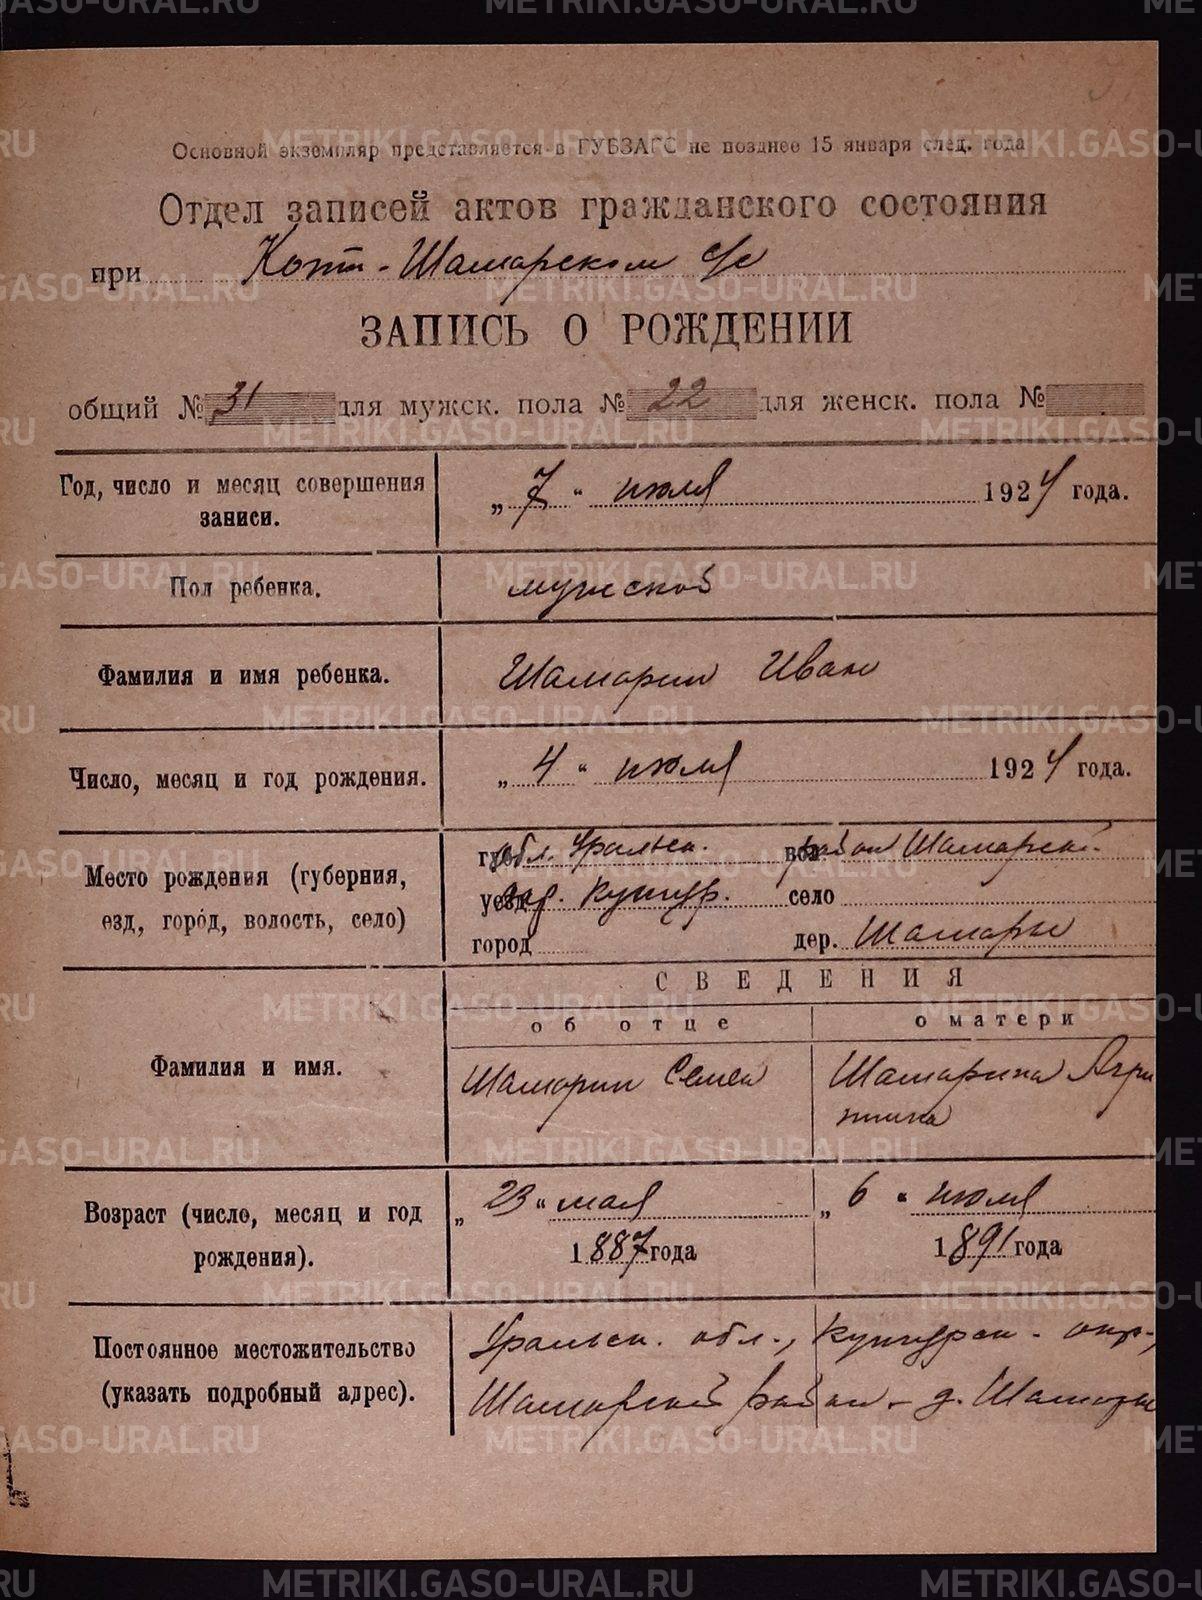 Основной экземпляр представляется в ГУБЗАГС не позднее 15 января след. года
Отдел записей актов гражданского состояния
при Конт-Шамарском с/с
ЗАПИСЬ О РОЖДЕНИИ
общий № 31 для мужск. пола № 22 для женск. пола №
Год, число и месяц совершения записи.
„ 7 " июля 1924 года.
Пол ребенка.
мужской
Фамилия и имя ребенка.
Шамарин Иван
Число, месяц и год рождения.
„ 4 " июля 1924 года.
Место рождения (губерния,
езд, город, волость, село)
обл. Уральск. район Шамарский
окр. Кунгур. село
город дер. Шамары
СВЕДЕНИЯ
об отце о матери
Фамилия и имя.
Шамарин Семен Шамарина Агри
пина
Возраст (число, месяц и год
рождения).
„ 23 " мая „ 6 " июля
1887 года 1891 года
Постоянное местожительство
(указать подробный адрес).
Уральск. обл., Кунгурск. окр.,
Шамарский район - д. Шамары
METRIKI.GASO-URAL.RU